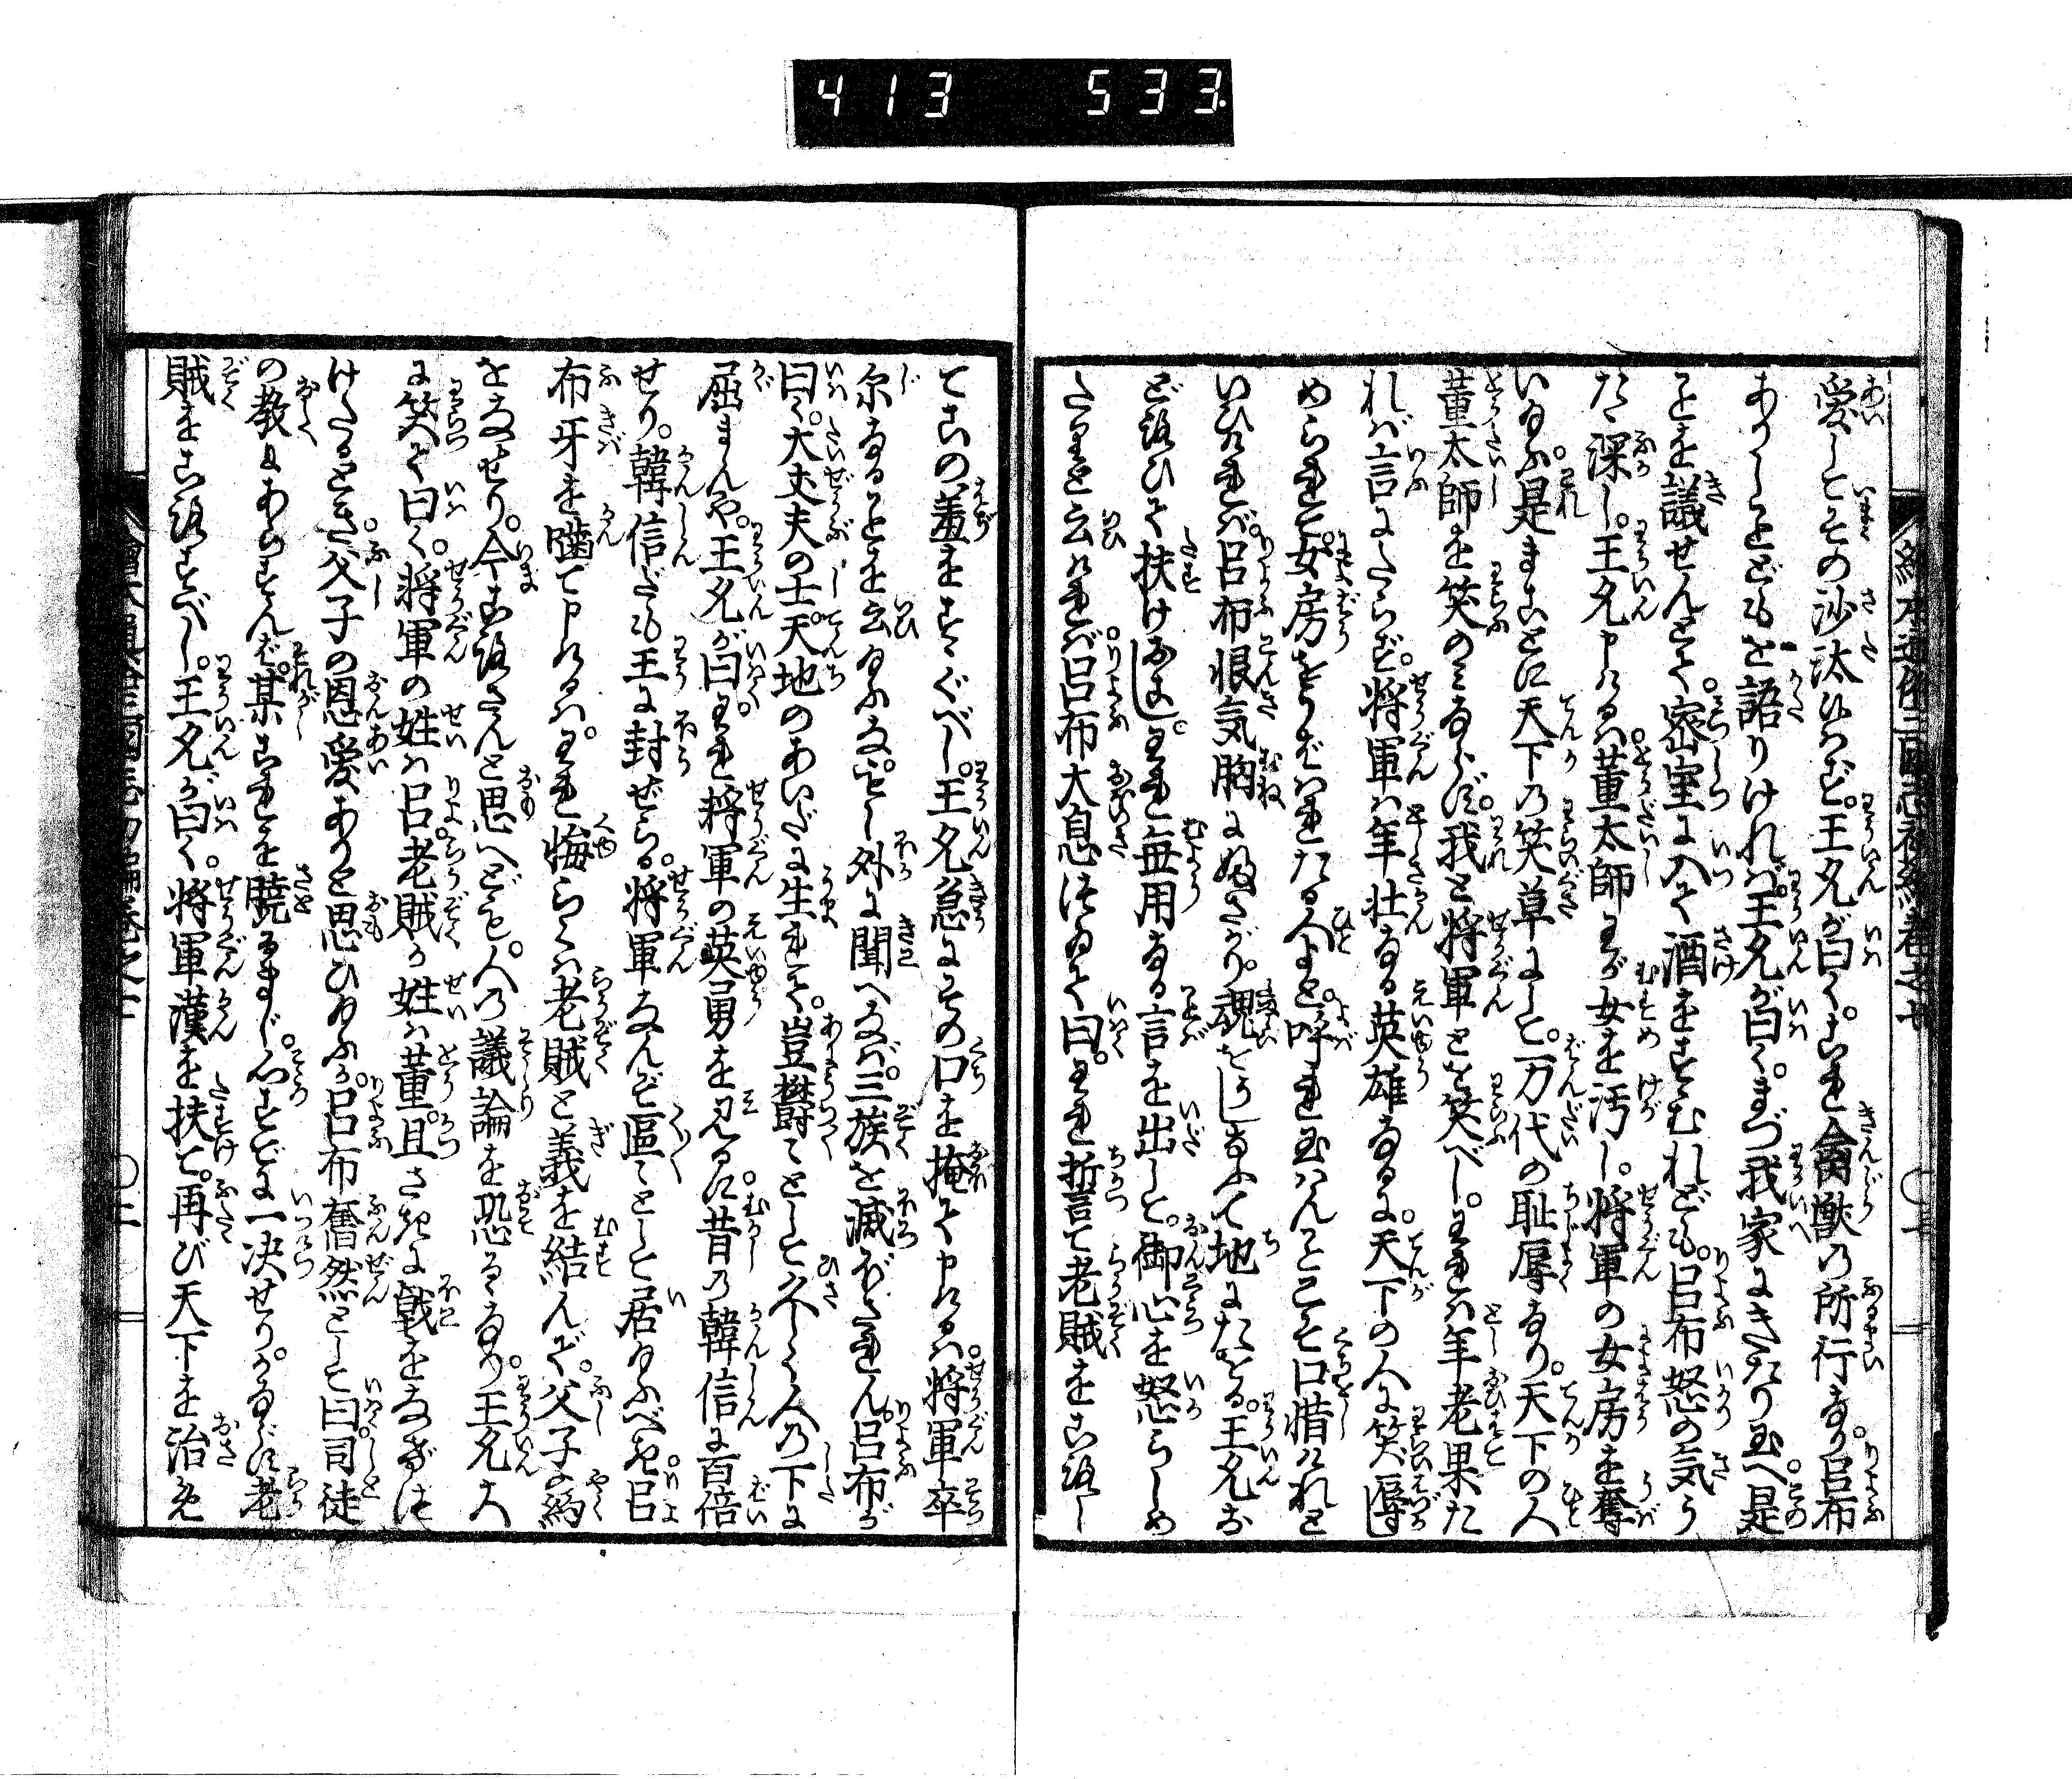 413 533
愛しとその沙汰ひつ\ど。王允が曰く。これ禽獣の所行なり。呂布
ありしことどもを語りければ。王允が曰く。まづ我家にきたり玉へ。是
ことを議せんとて。密室に入て酒をすゝむれども。呂布怒の気う
たゝ深し。王允申けるは。董太師わが女を汚し。将軍の女房を奪
いゐふ。是まことに天下の笑草にして。万代の恥辱なり。天下の人
董太師を笑のみならず。我と将軍とを笑べし。われは年老果た
れば言にたらず。将軍は年壮なる英雄なるに。天下の人に笑辱
められて。女房をうばはれたる人よと。呼れ玉はんことこそ口惜けれと
いひければ。呂布恨気胸にふさがり。魂をうしなふて地にたをる。王允お
どろひて扶けおこし。われ無用なる言を出して。御心を怒らしめ
たりと云ければ。呂布大息つゐて曰。われ誓て老賊をころし
てこの羞をすゝぐべし。王允急にその口を掩て申けるは。将軍卒
尓なることを云ゐふな。もし外に聞へなば。三族を滅ぼされん。呂布が
曰く。大丈夫の士。天地のあいだに生れて。豈鬱々として久しく人の下に
屈まんや。王允が曰。われ将軍の英勇を見るに。昔の韓信に百倍
せり。韓信だも王に封ぜらる。将軍なんぞ區々として居ゐふべき。呂
布牙を噛て申けるは。われ悔らくは老賊と義を結んで。父子の約
をなせり。今ころさんと思へども。人の議論を恐るゝなり。王允大
に笑て曰く。将軍の姓は呂。老賊が姓は董。且さきに戟をなげつ
けたるとき。父子の恩愛ありと思ひゐふか。呂布奮然として曰。司徒
の教にあらずんば。某これを暁るまじ。心すでに一决せり。かならず老
賊をころすべし。王允が曰く。将軍漢を扶て。再び天下を治め